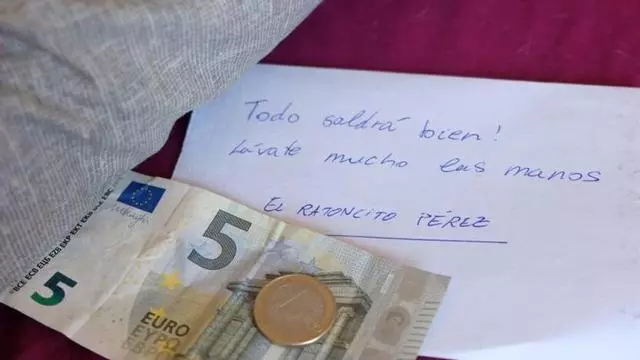 Todo saldrá bien!
Lávate mucho las manos
EL RATONCITO PÉREZ
5
BCE ECB ЕЦБ EZB EKP EKT
5
EURO
ΕΥΡΩ
ЕВРО
1